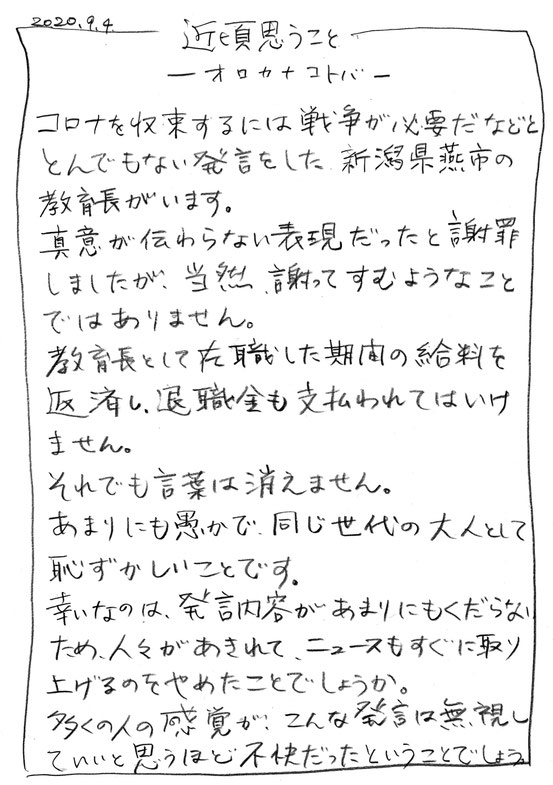 2020.9.4
近頃思うこと
―オロカナコトバ―
コロナを収束するには戦争が必要だなどと
とんでもない発言をした新潟県燕市の
教育長がいます。
真意が伝わらない表現だったと謝罪
しましたが、当然、謝ってすむようなこと
ではありません。
教育長として在職した期間の給料を
返済し、退職金も支払われてはいけ
ません。
それでも言葉は消えません。
あまりにも愚かで、同じ世代の大人として
恥ずかしいことです。
幸いなのは、発言内容があまりにもくだらない
ため、人々があきれて、ニュースもすぐに取り
上げるのをやめたことでしょうか。
多くの人の感覚が、こんな発言は無視し
ていいと思うほど不快だったということでしょう。